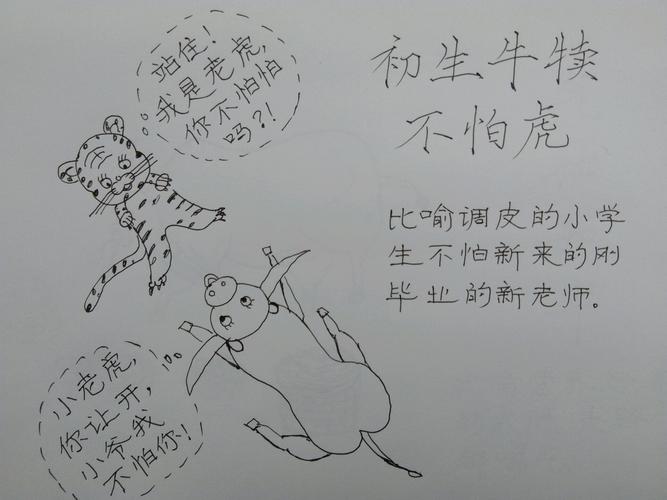 站住！
我是老虎，
你不怕怕
吗？！
初生牛犊
不怕虎
比喻调皮的小学
生不怕新来的刚
毕业的新老师。
小老虎，
你让开，
小爷我
不怕你！